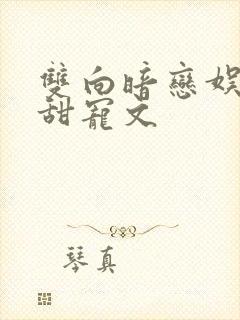 雙向暗戀娛
甜寵文
琴真